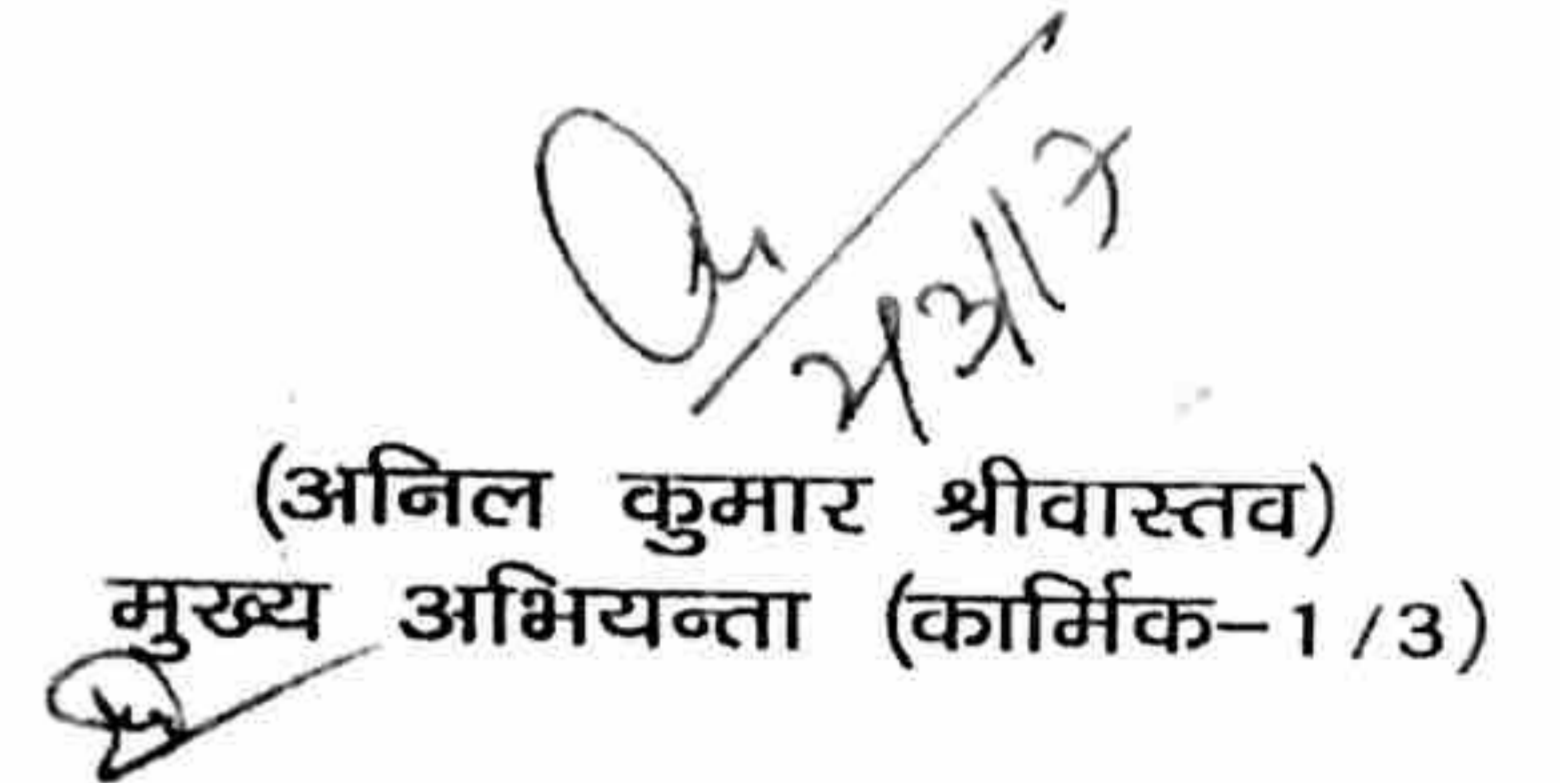 (अनिल कुमार श्रीवास्तव)
मुख्य अभियन्ता (कार्मिक-1/3)